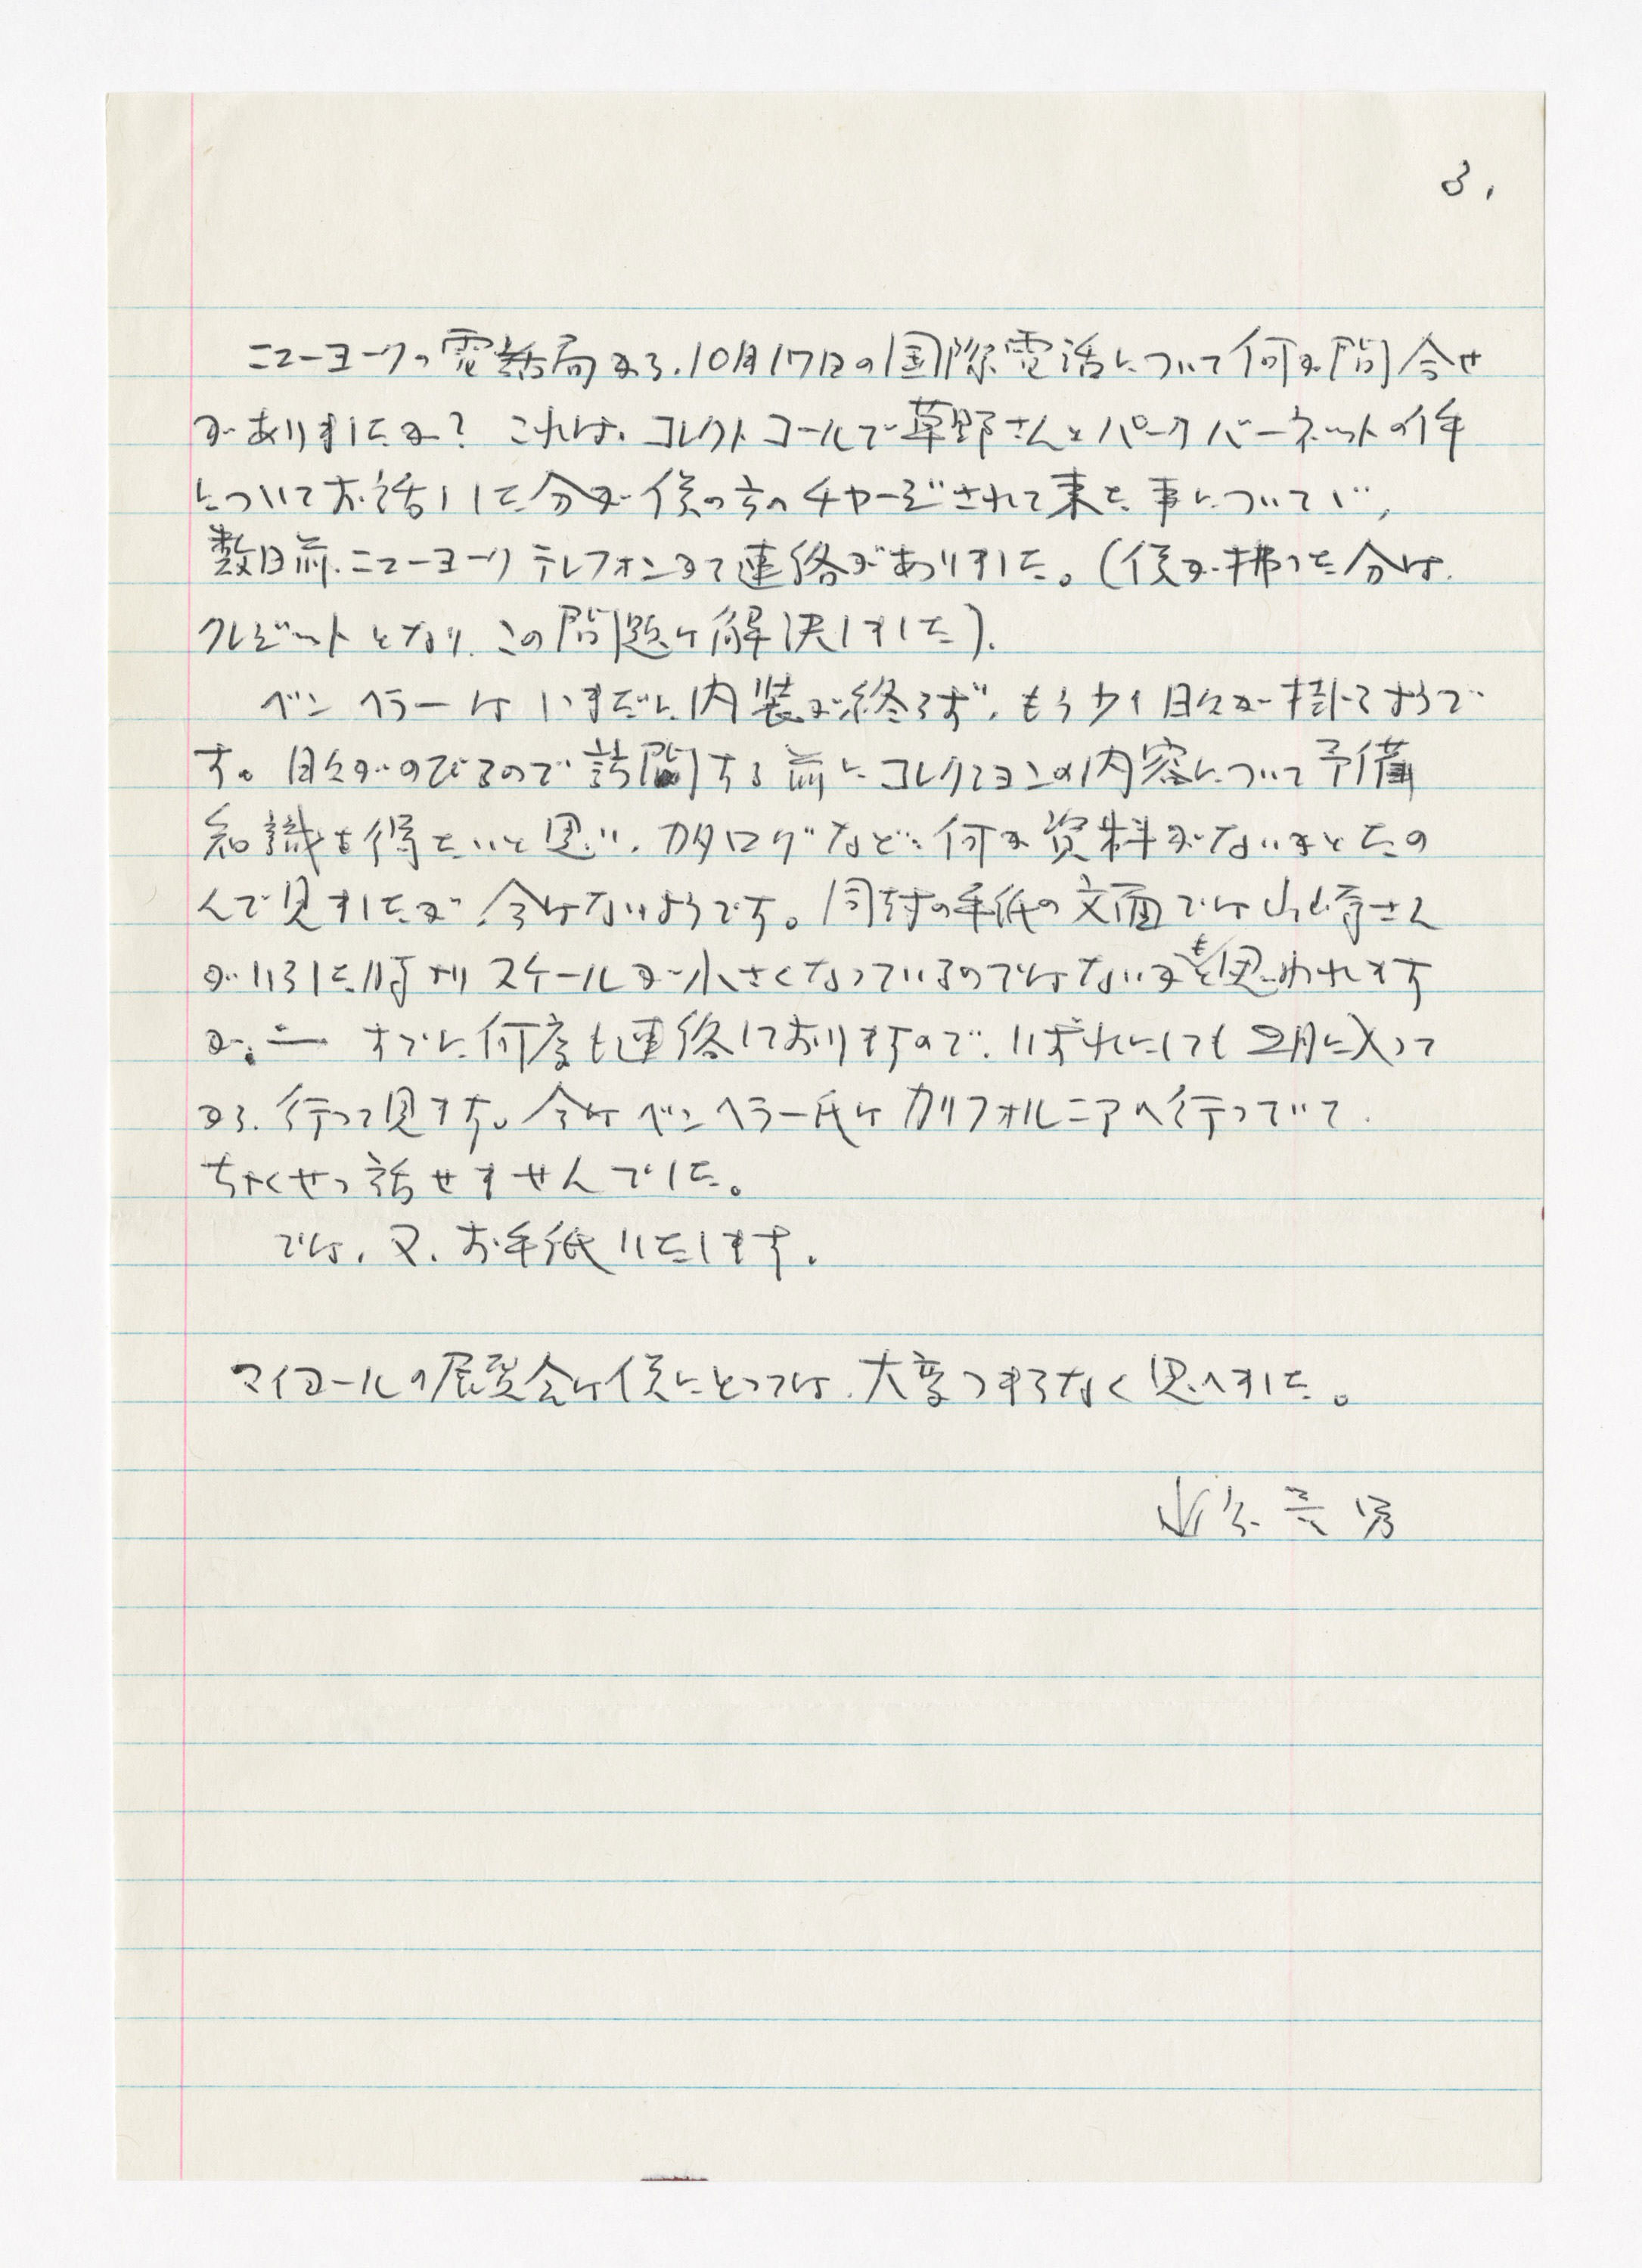 3.
ニューヨークの電話局から、10月17日の国際電話について何か問合せ
がありましたか? これは、コレクトコールで草野さんとパークバーネットの件
についてお話しした分が僕の方へチャージされて来た事についてで、
数日前、ニューヨークテレフォンから連絡がありました。(僕が拂った分は
クレジットとなり、この問題は解決しました)。
ベンヘラーはいまだに内装が終らず、もう少し日々が掛かるようで
す。日々がのびるので訪問する前にコレクションの内容について予備
知識を得たいと思い、カタログなど、何か資料がないかとたの
んで見ましたが今はないようです。同封の手紙の文面では山崎さん
がいらした時よりスケールが小さくなっているのではないかとも思われます
が、— すでに何度も連絡しておりますので、いずれにしても2月に入って
から、行って見ます。今はベンヘラー氏はカリフォルニアへ行っていて、
ちょくせつ話せませんでした。
では、又、お手紙いたします。
マイヨールの展覧会は僕にとっては、大変つまらなく思へました。